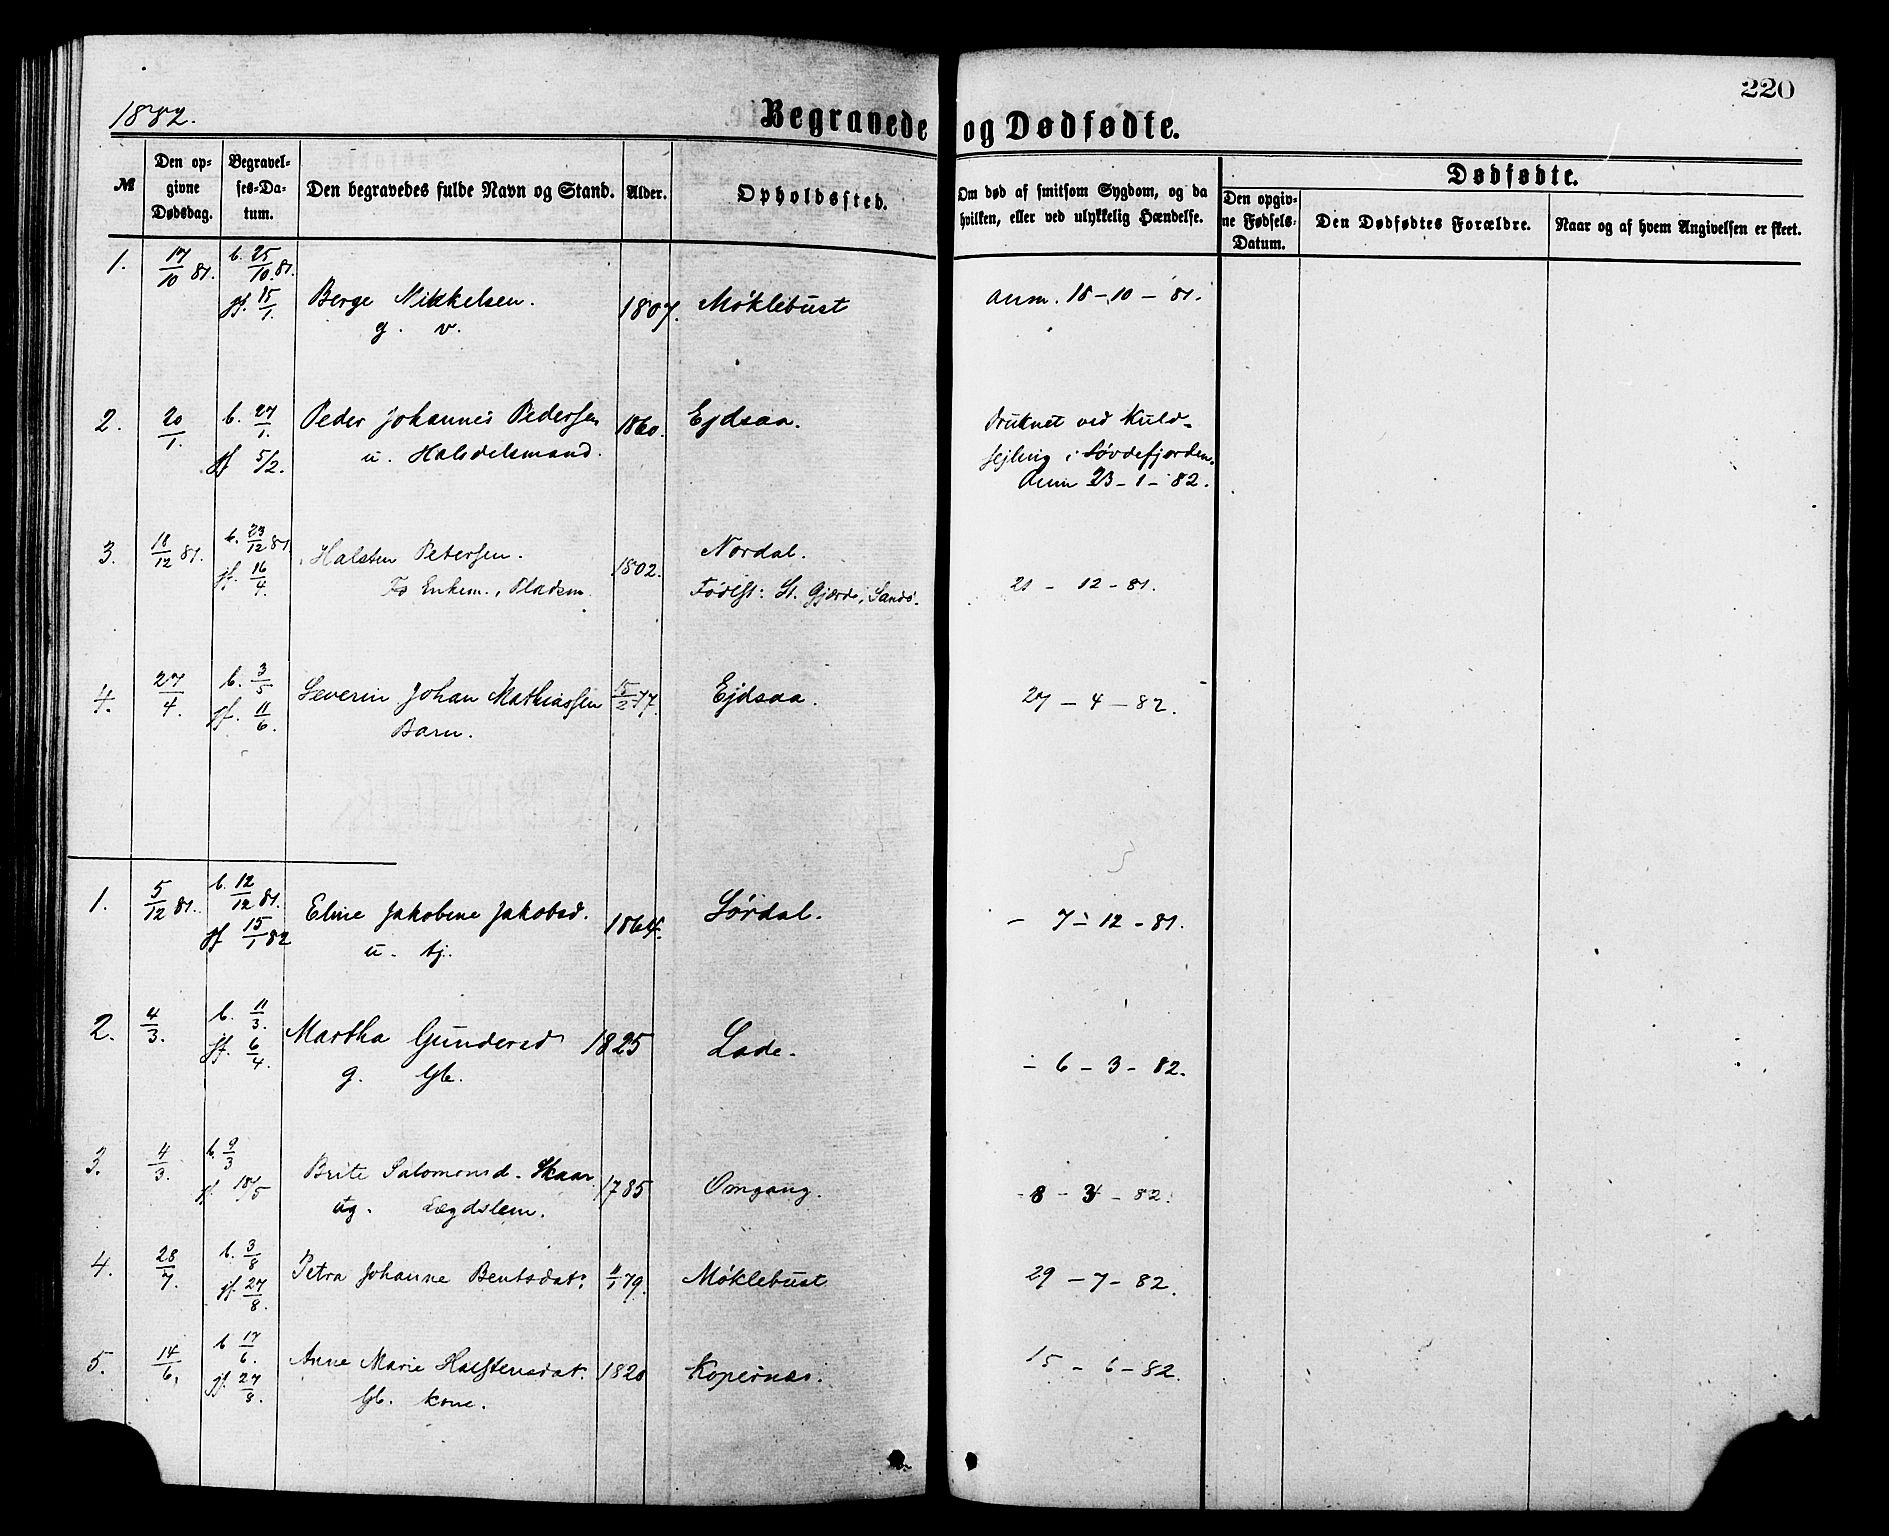 220
1882.
Begravede og Dødfødte.
№
Den op-
givne
Dødsdag.
Begravel-
ses-Da-
tum.
Den begravedes fulde Navn og Stand.
Alder.
Opholdssted.
Om død af smitsom Sygdom, og da
hvilken, eller ved ulykkelig Hændelse.
Dødfødte.
Den opgiv-
ne Fødsels-
Datum.
Den Dødfødtes Forældre.
Naar og af hvem Angivelsen er skeet.
1. 17/10 81. b. 25/10 81.
jf. 15/1. Berge Mikkelsen. 1807. Møklebust anm. 18-10-81.
g. v.
2. 20/1. b. 27/1. Peder Johannes Pedersen 1860. Ejdsaa. Druknet ved Kuld-
jf 5/2. u. Halvdelsmand. sejling i Søvdefjorden.
Anm 23-1-82.
3. 18/12 81. b. 23/12 81. Halsten Petersen. 1802. Nordal.
jf. 16/4. Fs Enkem., Pladsm. Fødest: St. Gjerde, Sandö. 21-12-81.
4. 27/4. b. 3/5 Severin Johan Mathiassen 15/2 77. Ejdsaa. 27-4-82.
jf. 11/6. Barn.
1. 5/12 81. b. 12/12 81. Eline Jakobine Jakobsd. 1864. Sørdal. - 7-12-81.
jf 15/1 82 u. tj.
2. 4/3. b. 11/3. Martha Gundersd 1825 Lade. - 6-3-82.
jf. 6/4. g. Gb.
3. 4/3. b. 9/3 Brite Salomonsd. Skaar 1785 Omgang. -8-3-82.
jf. 18/5 Lægdslem.
4. 28/7. b. 3/8 Petra Johanne Bentsdat: 11/1 79. Møklebust 29-7-82.
jf. 27/8.
5. 14/6. b 17/6. Anne Marie Halstensdat. 1820 Kopernæs. 15-6-82.
jf. 27/8. Gb. kone.